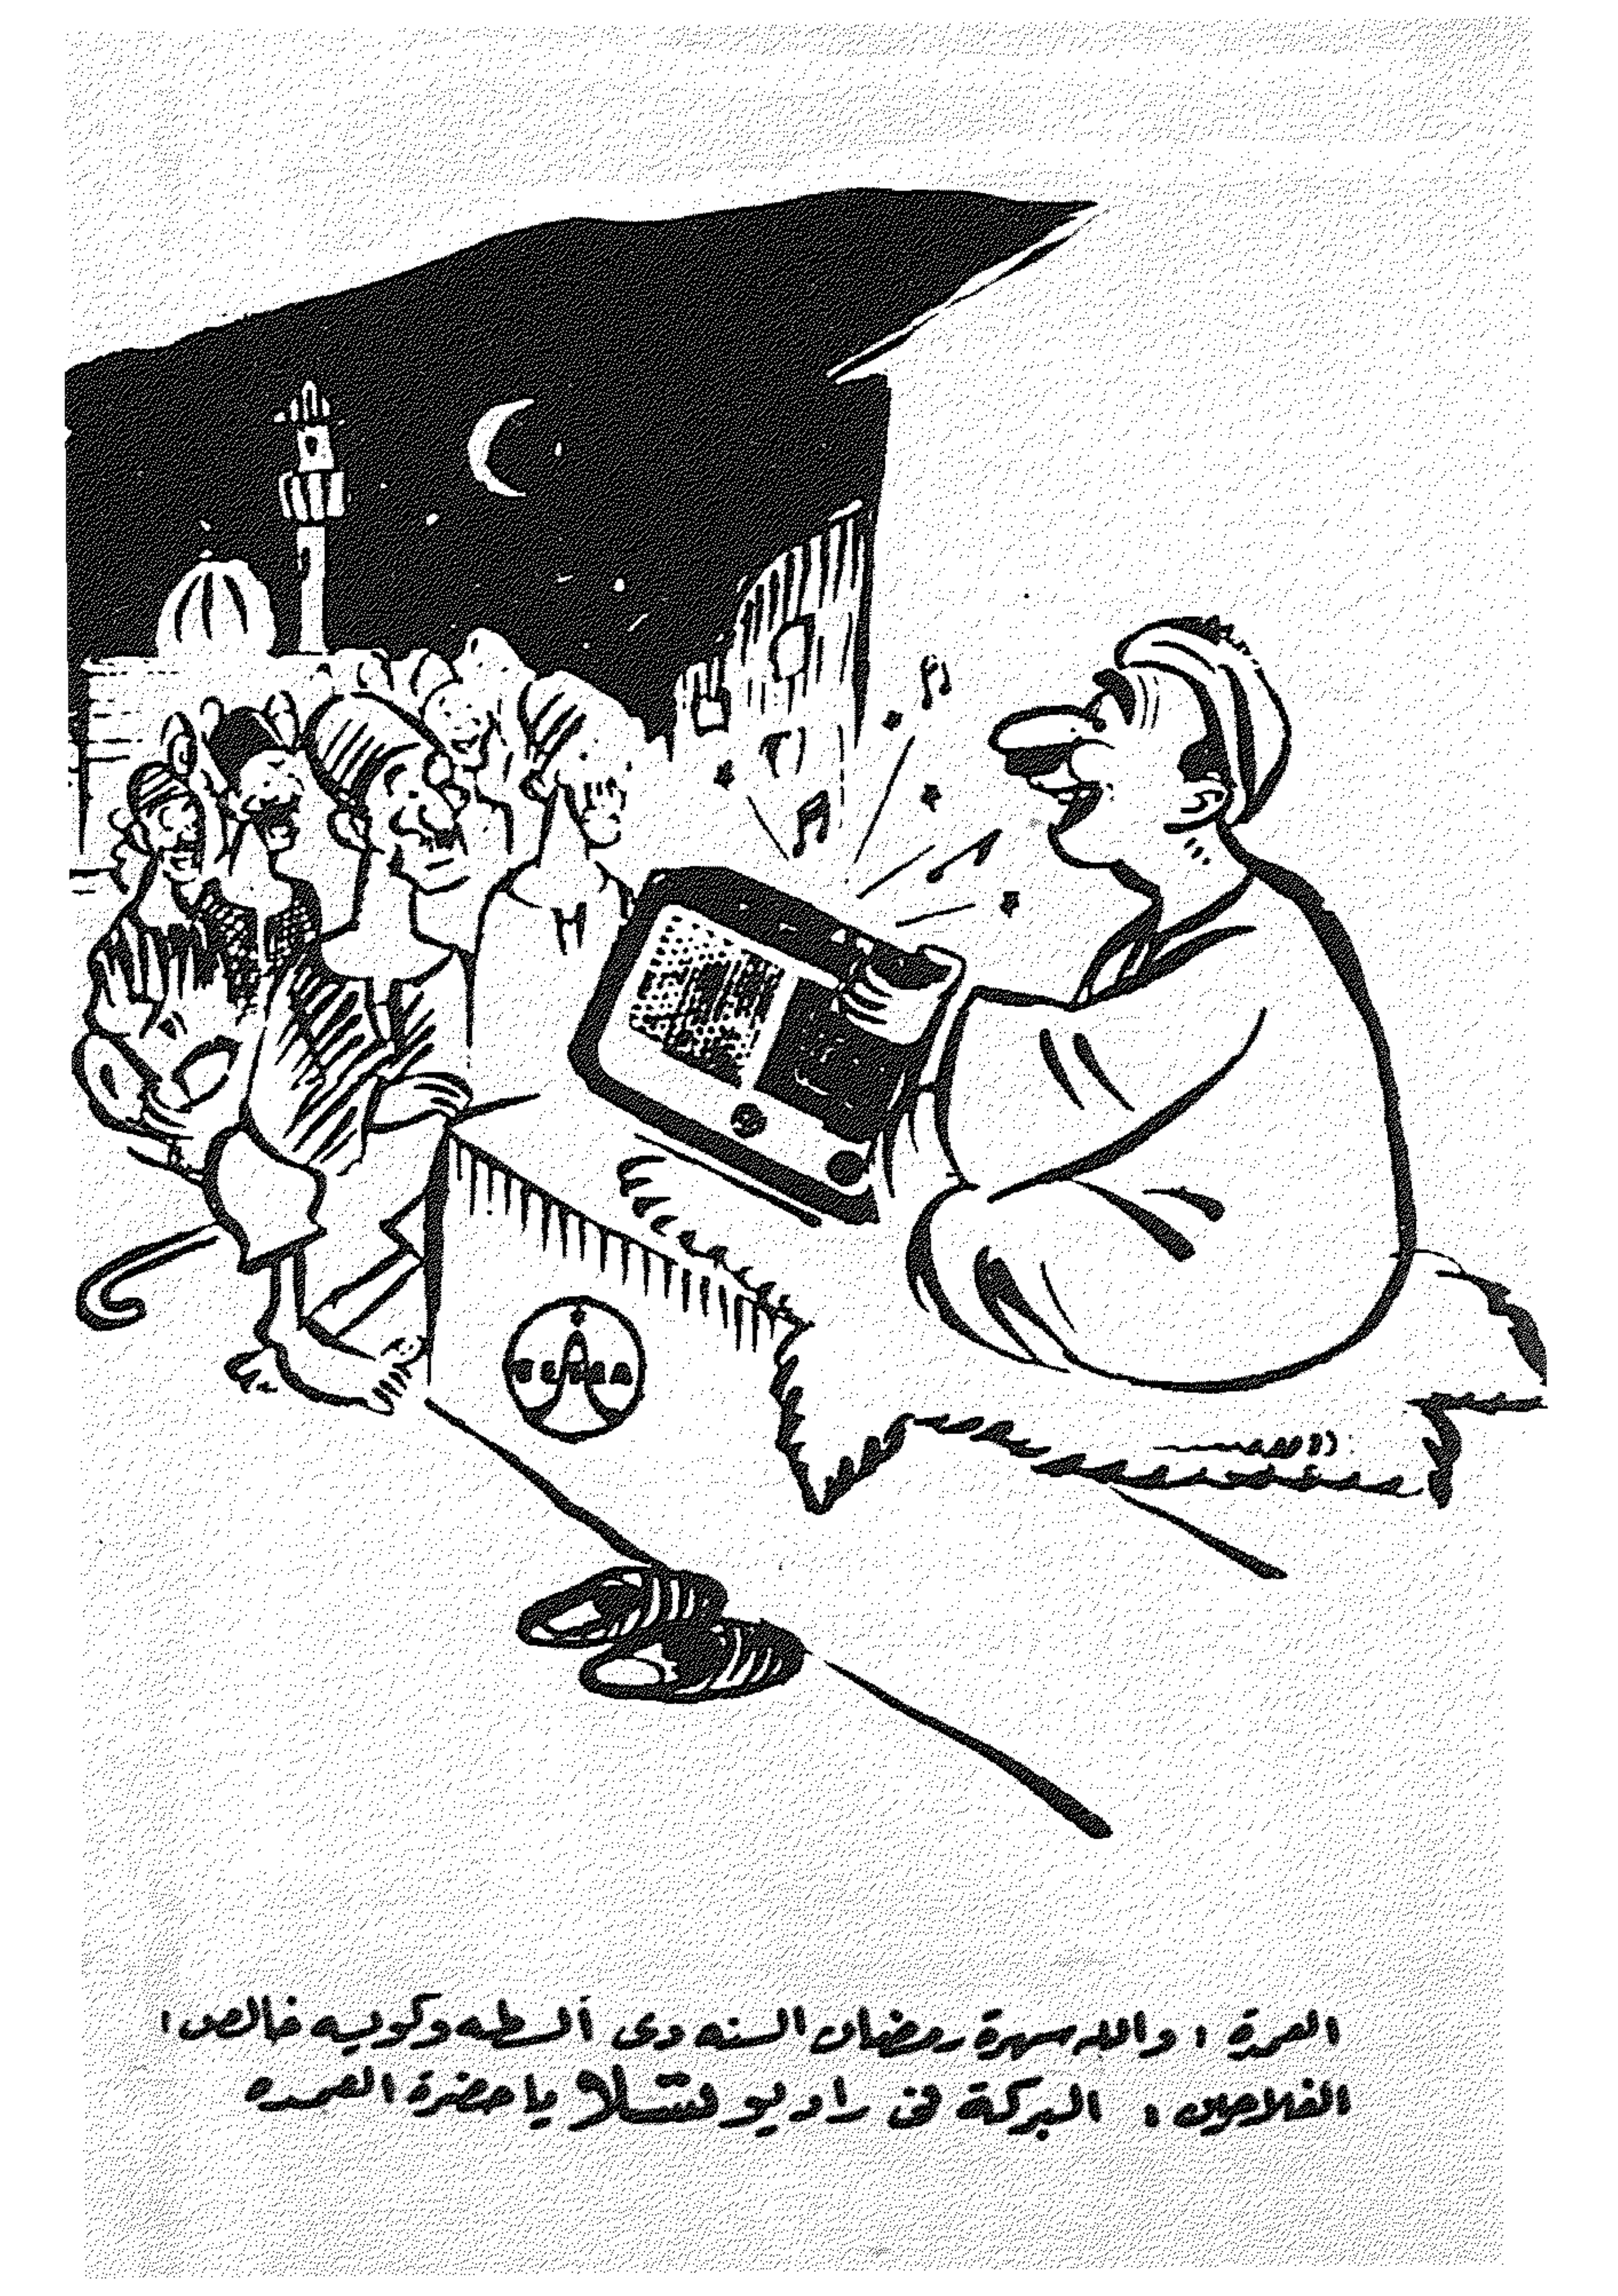 العمدة : والله سهرة رمضان السنه دى ألسطه وكويسه خالص !
الفلاحين : البركة فى راديو فستلا يا حضرة العمده